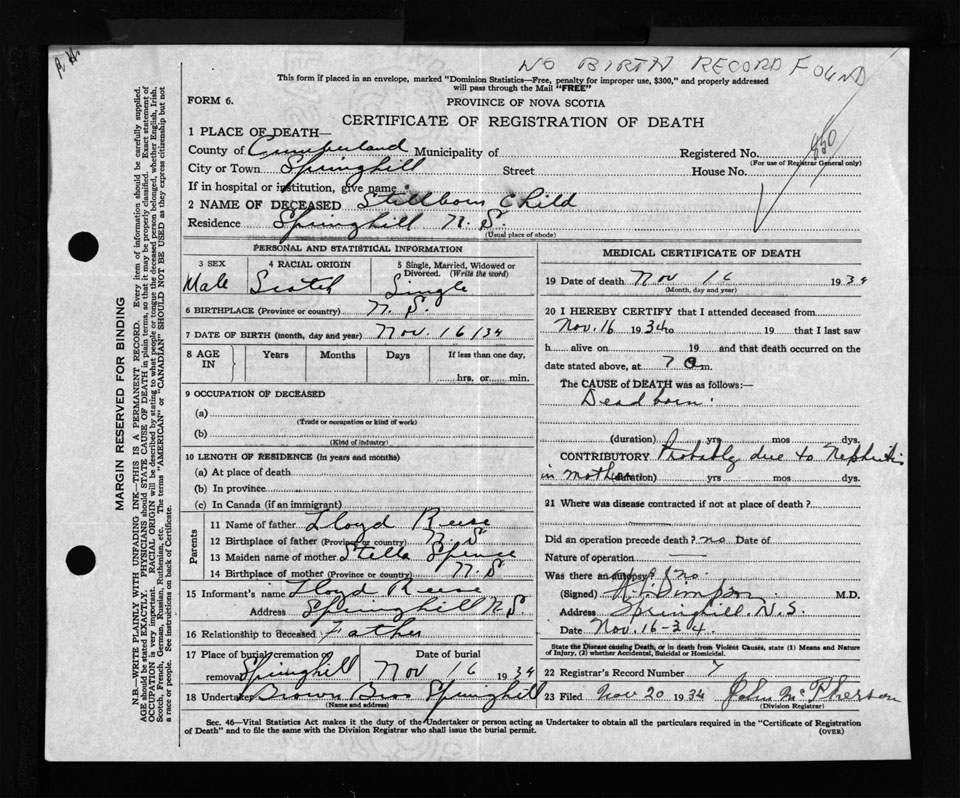 NO BIRTH RECORD FOUND
This form if placed in an envelope, marked "Dominion Statistics—Free, penalty for improper use, $300," and properly addressed
will pass through the Mail "FREE"
FORM 6.
PROVINCE OF NOVA SCOTIA
CERTIFICATE OF REGISTRATION OF DEATH
1 PLACE OF DEATH—
County of Cumberland Municipality of
Registered No. 850
(For use of Registrar General only)
City or Town Springhill Street House No.
If in hospital or institution, give name
2 NAME OF DECEASED Stillborn Child
Residence Springhill N. S.
(Usual place of abode)
MARGIN RESERVED FOR BINDING
N.B.—WRITE PLAINLY WITH UNFADING INK—THIS IS A PERMANENT RECORD. Every item of information should be carefully supplied.
AGE should be stated EXACTLY. PHYSICIANS should STATE CAUSE OF DEATH in plain terms, so that it may be properly classified. Exact statement of
OCCUPATION is very important. RACIAL ORIGIN will be described by stating to what people or tongue the deceased person belonged, whether English, Irish,
Scotch, French, German, Russian, Ruthenian, etc. The terms "AMERICAN" or "CANADIAN" SHOULD NOT BE USED as they express citizenship but not
a race or people. See instructions on back of Certificate.
PERSONAL AND STATISTICAL INFORMATION
3 SEX
Male
4 RACIAL ORIGIN
Scotch
5 Single, Married, Widowed or
Divorced. (Write the word)
Single
6 BIRTHPLACE (Province or country) N. S.
7 DATE OF BIRTH (month, day and year) Nov. 16/34
8 AGE
IN
Years Months Days If less than one day,
hrs. or min.
9 OCCUPATION OF DECEASED
(a)
(Trade or occupation or kind of work)
(b)
(Kind of industry)
10 LENGTH OF RESIDENCE (in years and months)
(a) At place of death
(b) In province
(c) In Canada (if an immigrant)
Parents
11 Name of father Lloyd Reese
12 Birthplace of father (Province or country) N. S
13 Maiden name of mother Stella Spence
14 Birthplace of mother (Province or country) N. S
15 Informant's name Lloyd Reese
Address Springhill N S
16 Relationship to deceased Father
17 Place of burial, cremation or
removal Springhill
Date of burial
Nov 16 1934
18 Undertaker Brown Bros Springhill
(Name and address)
MEDICAL CERTIFICATE OF DEATH
19 Date of death Nov 16 1934
(Month, day and year)
20 I HEREBY CERTIFY that I attended deceased from
Nov. 16 1934 to 19 that I last saw
h alive on 19 and that death occurred on the
date stated above, at 7 a m.
The CAUSE of DEATH was as follows:—
Dead born.
(duration) yrs mos dys.
CONTRIBUTORY Probably due to Nephritis
in mother (duration) yrs mos dys.
21 Where was disease contracted if not at place of death?
Did an operation precede death? no Date of
Nature of operation —
Was there an autopsy? no.
(Signed) Simpson M.D.
Address Springhill, N.S.
Date Nov. 16-34.
State the Disease causing Death, or in death from Violent Causes, state (1) Means and Nature
of Injury, (2) whether Accidental, Suicidal or Homicidal.
22 Registrar's Record Number 7
23 Filed Nov 20 1934 John McPherson
(Division Registrar)
Sec. 46—Vital Statistics Act makes it the duty of the Undertaker or person acting as Undertaker to obtain all the particulars required in the "Certificate of Registration
of Death" and to file the same with the Division Registrar who shall issue the burial permit.
(OVER)